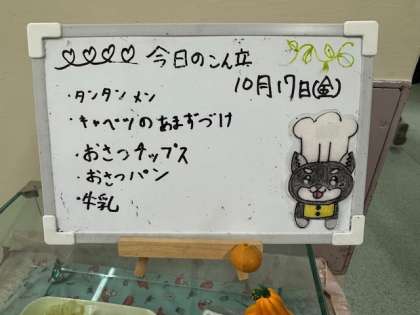 今日のこん立
10月17日(金)
・タンタンメン
・キャベツのあまずづけ
・おさつチップス
・おさつパン
・牛乳